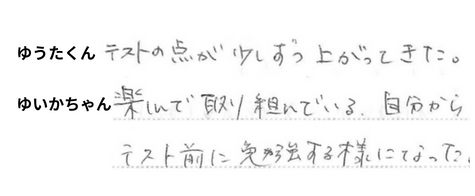 ゆうたくん テストの点が少しずつ上がってきた。
ゆいかちゃん 楽しんで取り組んでいる。自分から
テスト前に勉強する様になった。